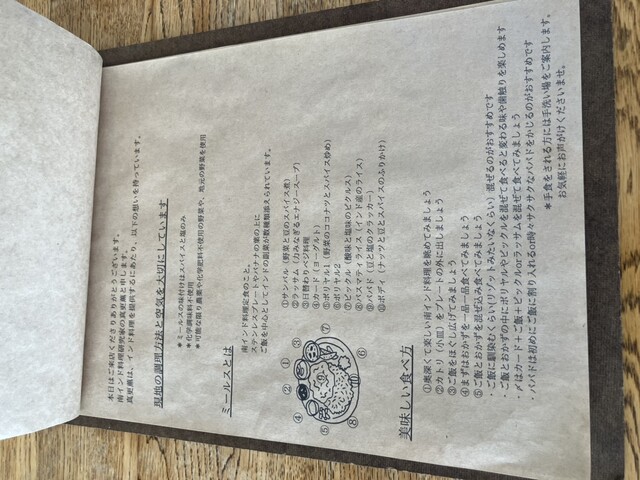 本日はご来店くださりありがとうございます。
南インド料理研究家の真更薫と申します。
真更薫は、インド料理を提供するにあたり、以下の想いを持っています。
現地の調理方法と空気を大切にしています
＊ミールスの味付けはスパイスと塩のみ
＊化学調味料不使用
＊可能な限り農薬や化学肥料不使用の野菜や、地元の野菜を使用
ミールスとは
南インド料理定食のこと。
ステンレスプレートやバナナの葉の上に
ご飯を中心としてインドの副菜が数種類添えられています。
①サンバル（野菜と豆のスパイス煮）
②ラッサム（力みなぎるエナジースープ）
③日替わりベジ料理
④カード（ヨーグルト）
⑤ポリヤル1（野菜のココナツとスパイス炒め）
⑥ポリヤル2
⑦ピックル（酸味と塩味のピクルス）
⑧バスマティライス（インド産のライス）
⑨パパド（豆と塩のクラッカー）
⑩ポディ（ナッツと豆とスパイスのふりかけ）
① ② ③ ④ ⑤ ⑥ ⑦ ⑧
美味しい食べ方
①奥深くて楽しい南インド料理を眺めてみましょう
②カトリ（小皿）をプレートの外に出しましょう
③ご飯をほぐし広げてみましょう
④まずはおかずを一品一品食べてみましょう
⑤ご飯とおかずを混ぜ込み食べてみましょう
・ご飯に馴染むくらい(リゾットみたいなくらい）混ぜるのがおすすめです
・ご飯とおかずの中にポリヤルやピックルを混ぜて食べると変わる味や歯触りを楽しめます
・〆はカード＋ご飯＋ピックルorラッサムを混ぜて食べてみましょう
・パパドは初めにご飯に割り入れるor時々サクサクなパパドをかじるのがおすすめです
＊手食をされる方には手洗い場をご案内します。
お気軽にお声がけくださいませ。